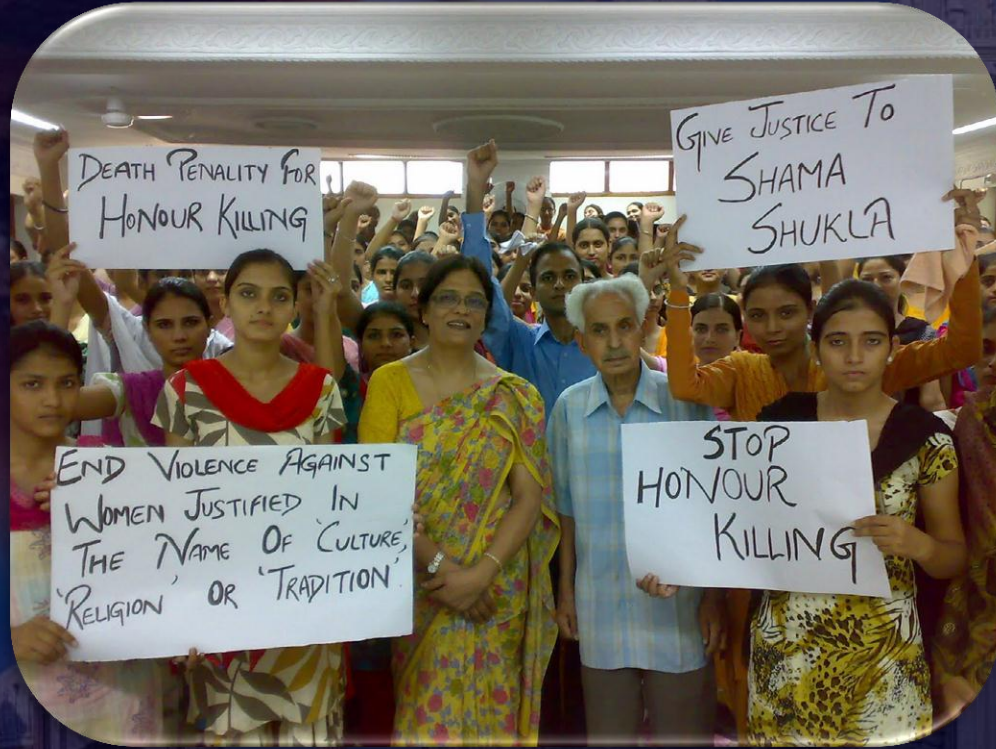 DEATH PENALITY FOR
HONOUR KILLING
GIVE JUSTICE TO
SHAMA
SHUKLA
END VIOLENCE AGAINST
WOMEN JUSTIFIED IN
THE NAME OF 'CULTURE',
'RELIGION' OR 'TRADITION'.
STOP
HONOUR
KILLING